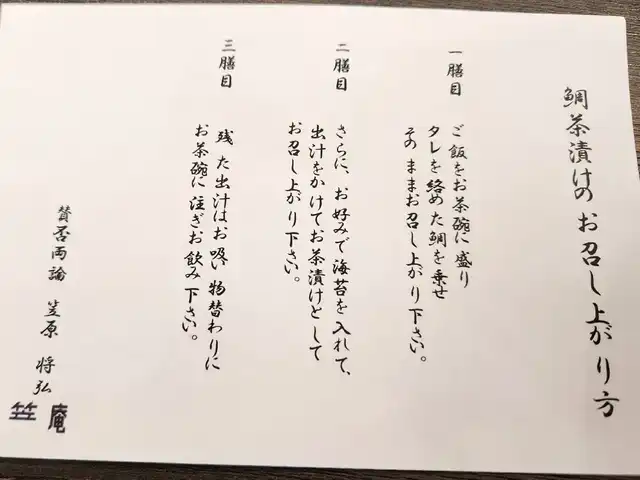 鯛茶漬けのお召し上がり方
一膳目
ご飯をお茶碗に盛り
タレを絡めた鯛を乗せ
そのままお召し上がり下さい。
二膳目
さらに、お好みで海苔を入れて、
出汁をかけてお茶漬けとして
お召し上がり下さい。
三膳目
残った出汁はお吸い物替わりに
お茶碗に注ぎお飲み下さい。
賛否両論 笠原 将弘
竺庵